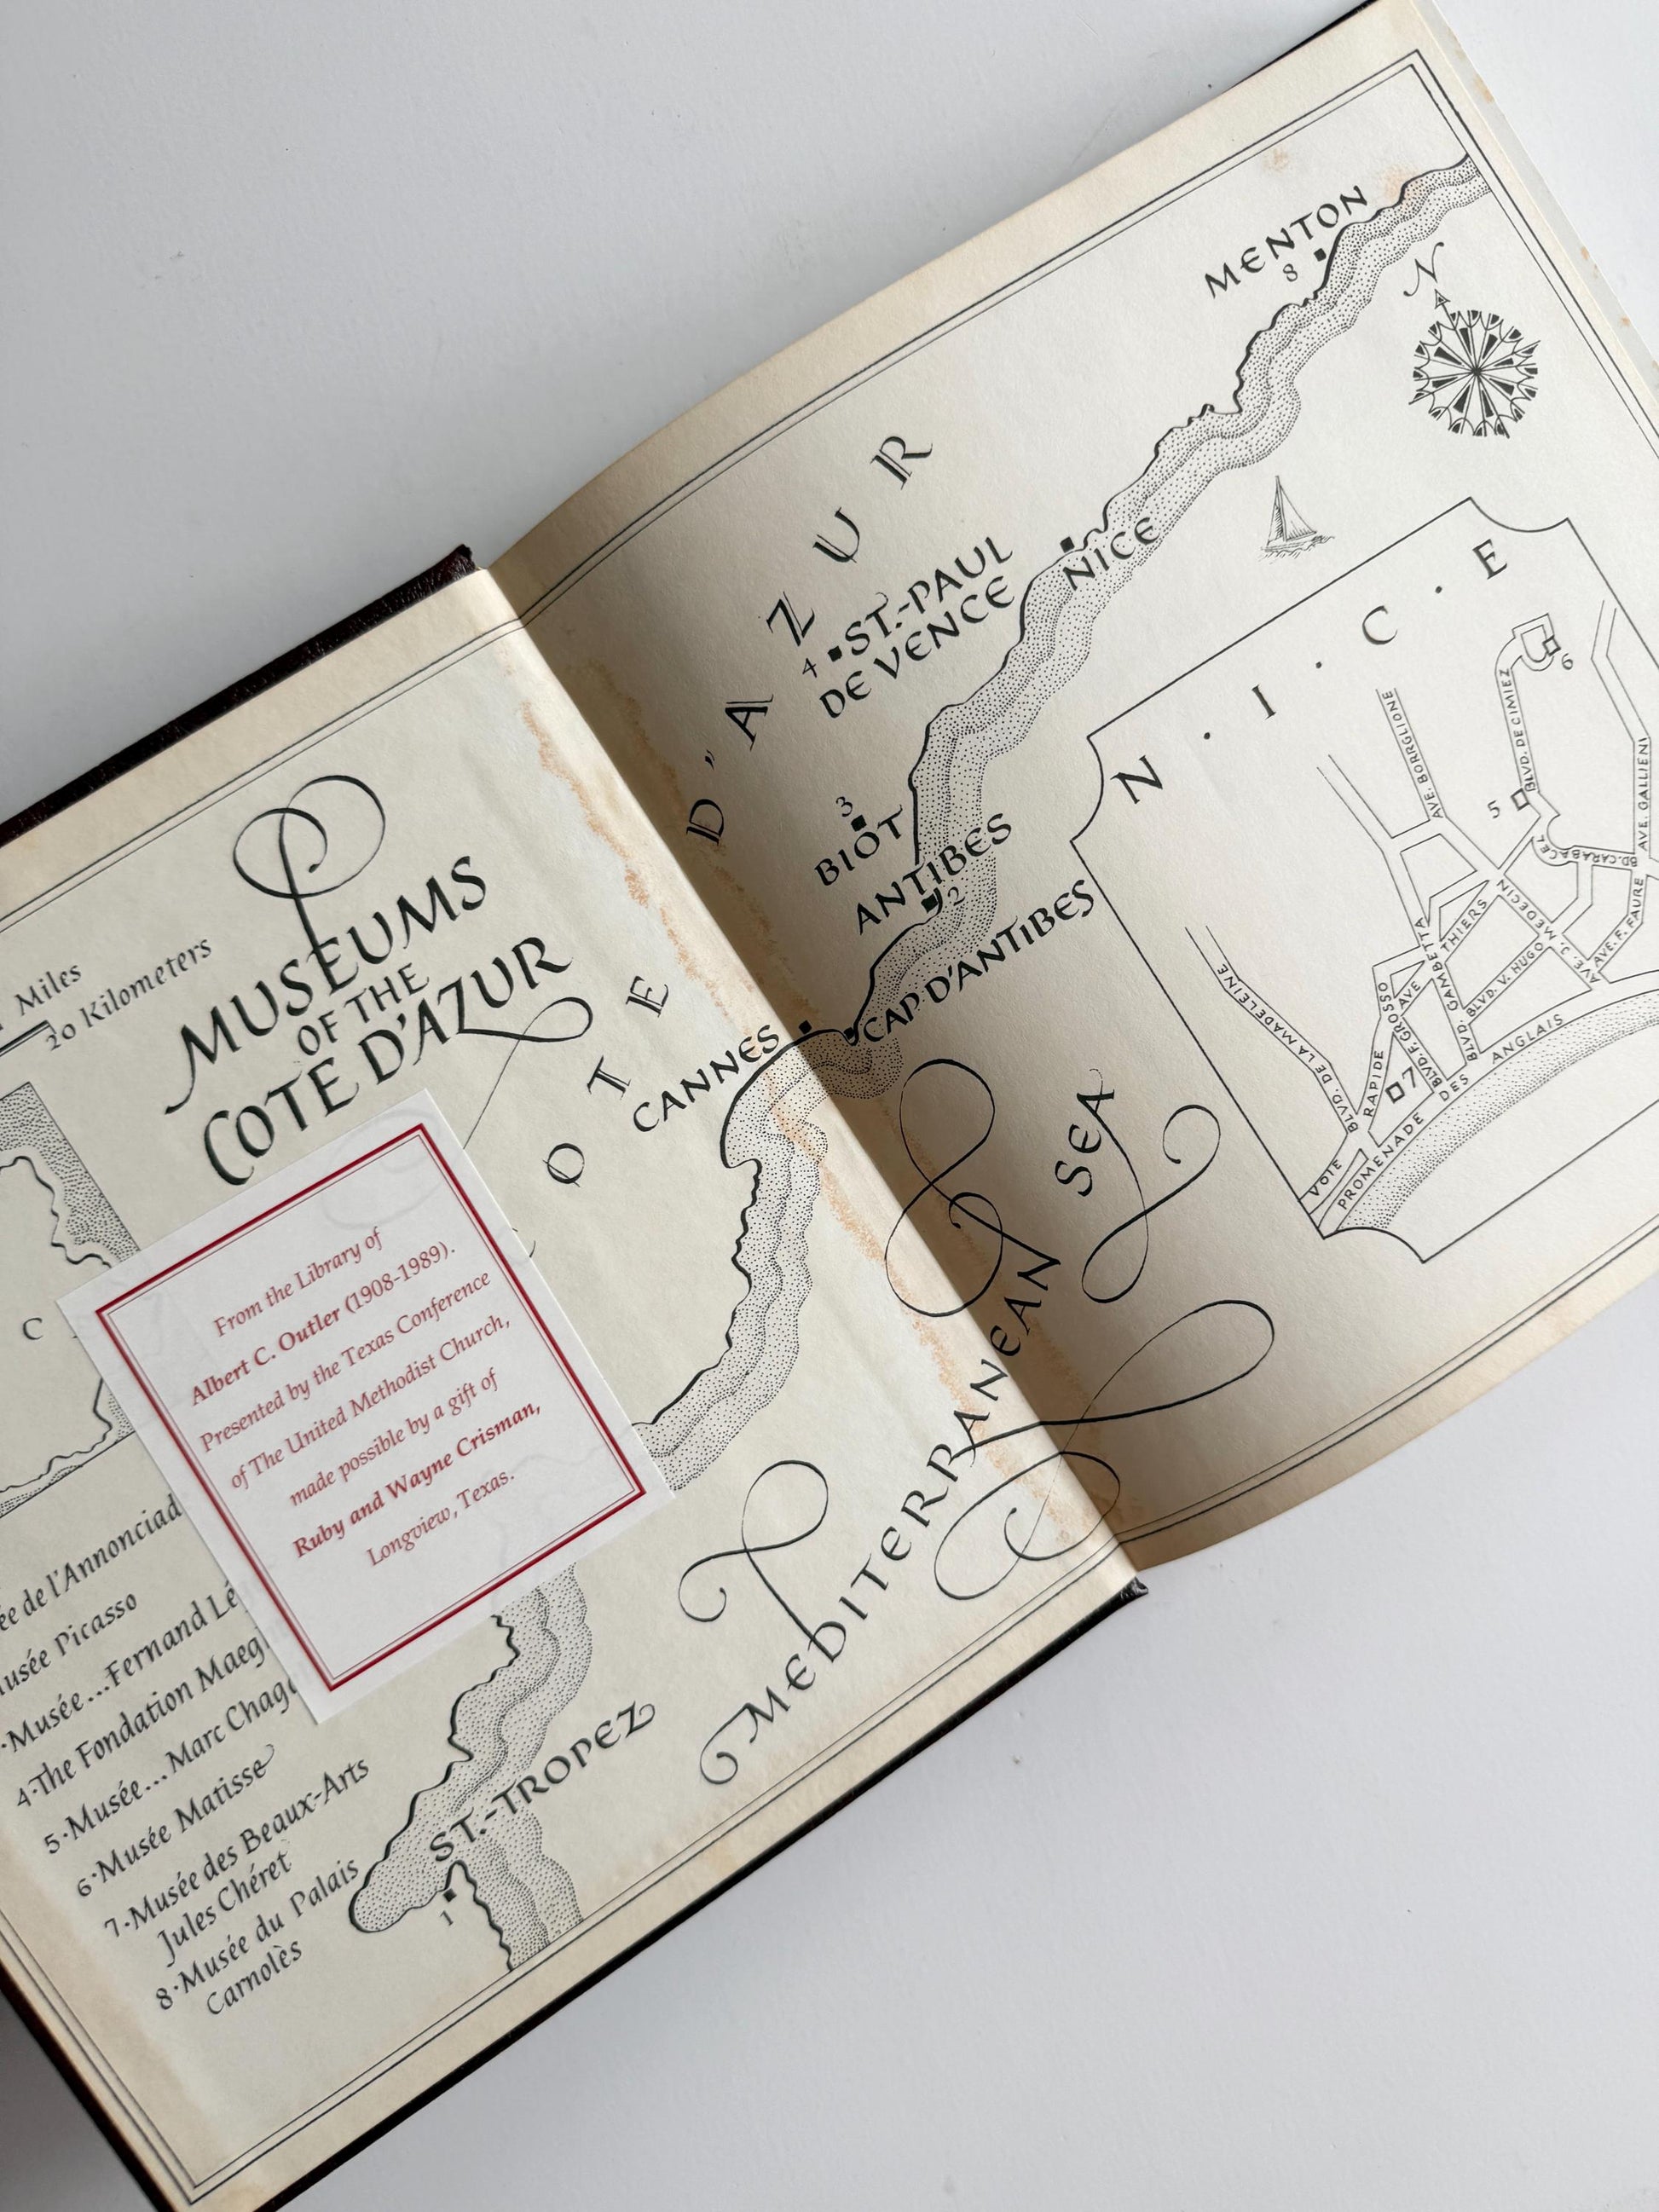 Miles
20 Kilometers
MUSEUMS
OF THE
COTE D'AZUR
From the Library of
Albert C. Outler (1908-1989).
Presented by the Texas Conference
of The United Methodist Church,
made possible by a gift of
Ruby and Wayne Crisman,
Longview, Texas.
C
ée de l'Annonciad
usée Picasso
Musée...Fernand Lé
4·The Fondation Maeg
5·Musée...Marc Chaga
6·Musée Matisse
7·Musée des Beaux-Arts
Jules Chéret
8·Musée du Palais
Carnolès
C O T E D'A Z U R
MENTON
8
N
NICE
4 ST.-PAUL
DE VENCE
3
BIOT
ANTIBES
2
CAP D'ANTIBES
CANNES
ST.-TROPEZ
1
MEDITERRANEAN SEA
N · I · C · E
6
BLVD. DE CIMIEZ
5
AVE. BORRGLIONE
AVE. GALLIENI
BD. CARABACEL
AVE. F. FAURE
AVE. J. MEDECIN
THIERS
AVE
GAMBETTA
BLVD. V. HUGO
BLVD. GAMBETTA
BLVD. F. GROSSO
BLVD. DE LA MADELEINE
VOIE RAPIDE
7
PROMENADE DES ANGLAIS